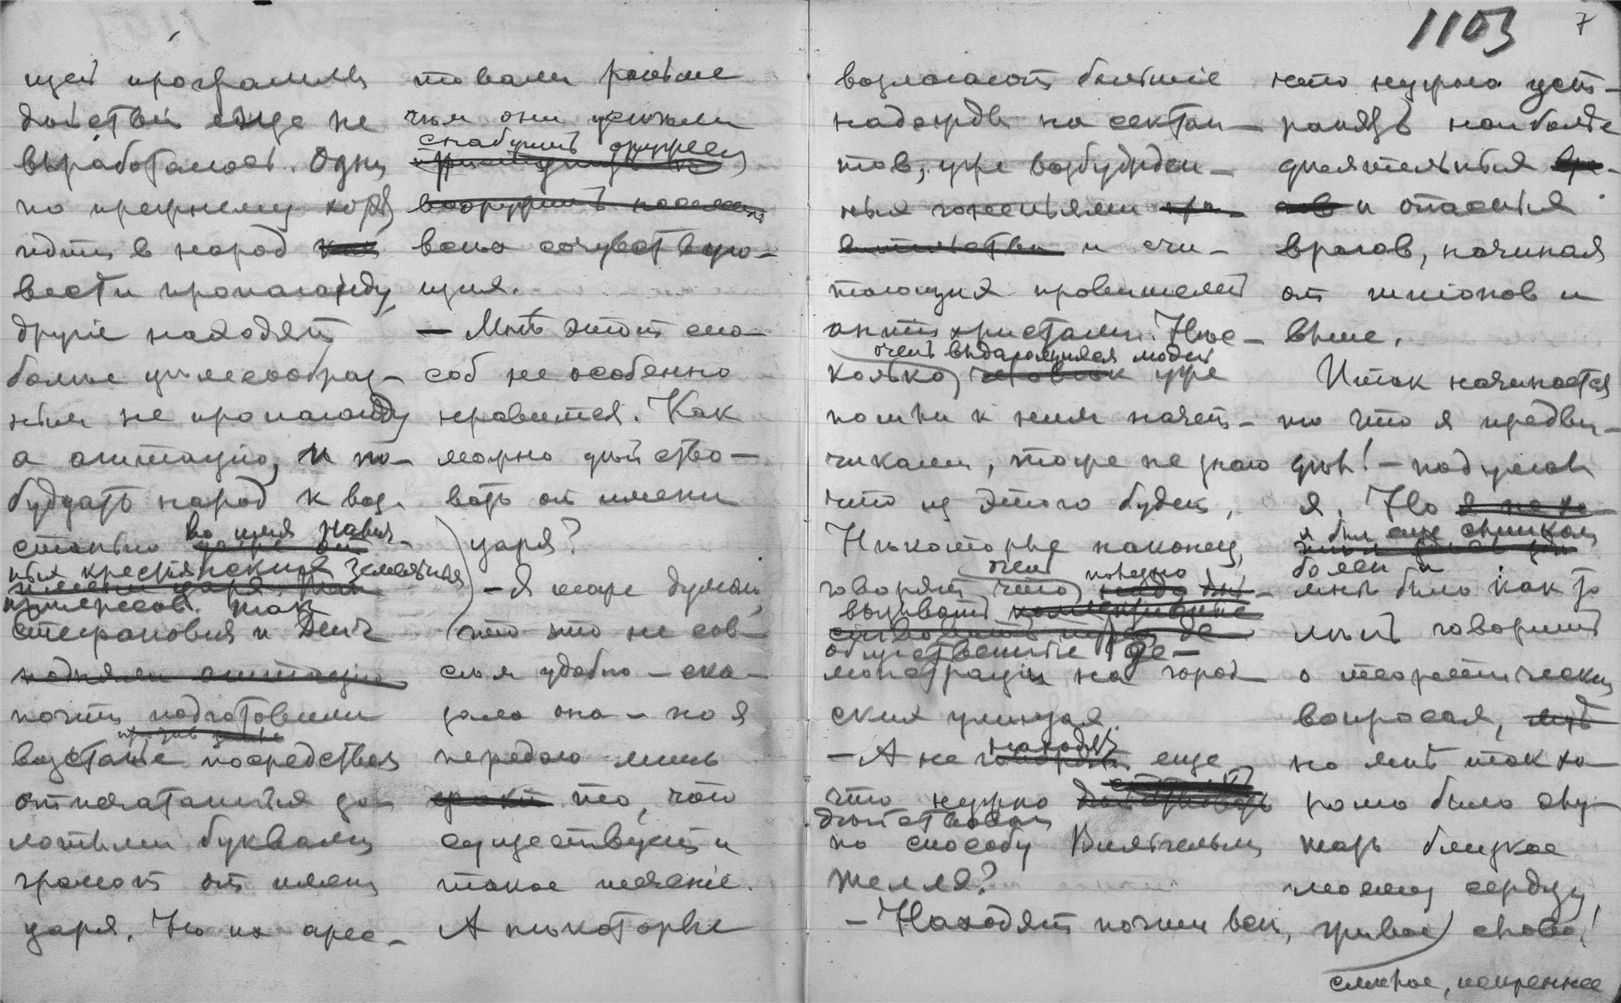 1103 7
щей программы
действий еще не
выработалось. Одни
по прежнему хотят
идти в народ
вести пропаганду,
другие находят
более целесообраз-
ным не пропаганду
а агитацию, и по-
буждать народ к воз-
станию во имя
ных крестьянских земельных
интересов. Так
Стефанович и Дейч
почти подготовили
возстаніе посредством
отпечатанныя зо-
лотыми буквами
грамот от имени
царя. Но их арес-
товали раньше
чем они успели
снабдить оружием
вооружить населен
всех сочувствую-
щих.
— Мне этот спо-
соб не особенно
нравится. Как
можно действо-
вать от имени
царя?
— Я тоже думаю,
что это не сов-
сем удобно — ска-
зала она — но я
передаю лишь
факт то, что
существует и
такое течение.
А некоторые
возлагают большие
надежды на сектан-
тов, уже возбужден-
ных гонениями
и счи-
тающих правителей
антихристами. Нес-
очень выдающихся людей
колько человек уже
пошли к ним начет-
чиками, тоже не знаю
что из этого будет.
Некоторые наконец,
очень полезно
говорят что надо бы
вызывать
общественные де-
монстрации на город-
ских улицах.
— А не находят еще
что нужно
действовать
по способу Вильгельма
Телля?
— Находят почти все,
что нужно уст-
ранять наиболее
деятельных
и опасных
врагов, начиная
от шпионов и
выше.
Итак начинается
то что я предви-
дел! — подумал
я. Но
я был еще слишком
болен и
мне было как то
лень говорить
о теоретических
вопросах,
но мне так хо-
рошо было слу-
шать близкое
моему сердцу,
живое слово!
смелое, искреннее